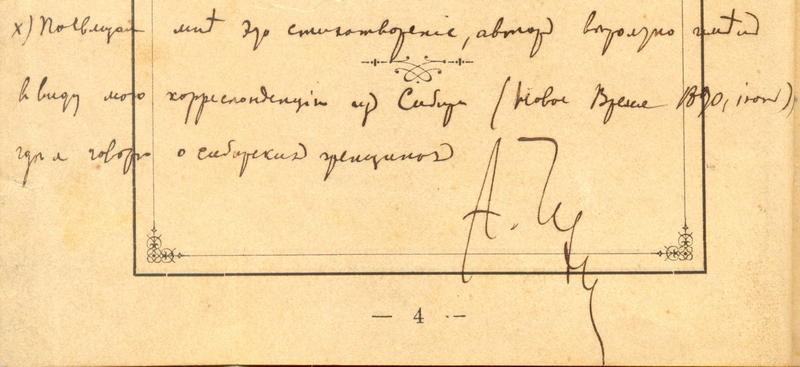 х) Посвящая мнѣ это стихотвореніе, автор вѣроятно имѣл
в виду мою корреспонденцію из Сибири (Новое Время 1890, іюнь),
гдѣ я говорю о сибирских женщинах
А. Ч
— 4 —